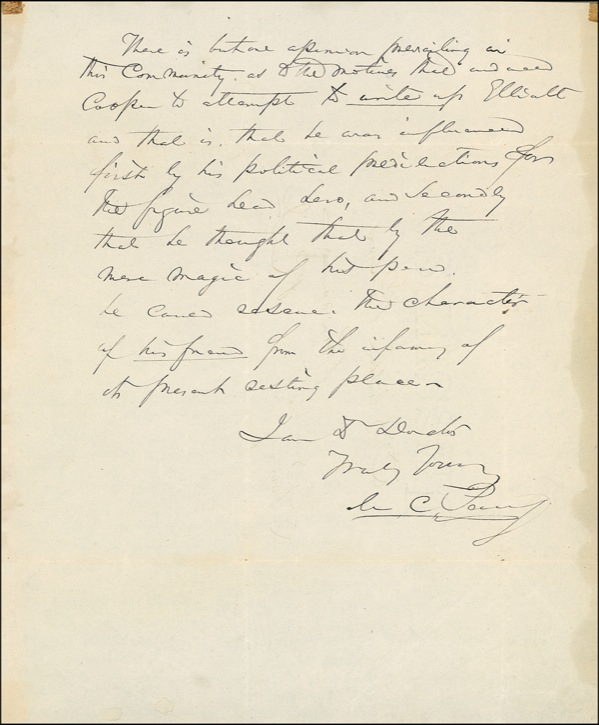 There is but one opinion prevailing in
this Community. as to the motives that induced
Cooper to attempt to write up Elliott
and that is. that he was influenced
first by his political predilections for
the figure head hero, and Secondly
that he thought that by the
mere magic of his pen.
he could rescue. the character
of his friend from the infamy of
its present resting place
I am Dr Doctor
Truly Yours
C.